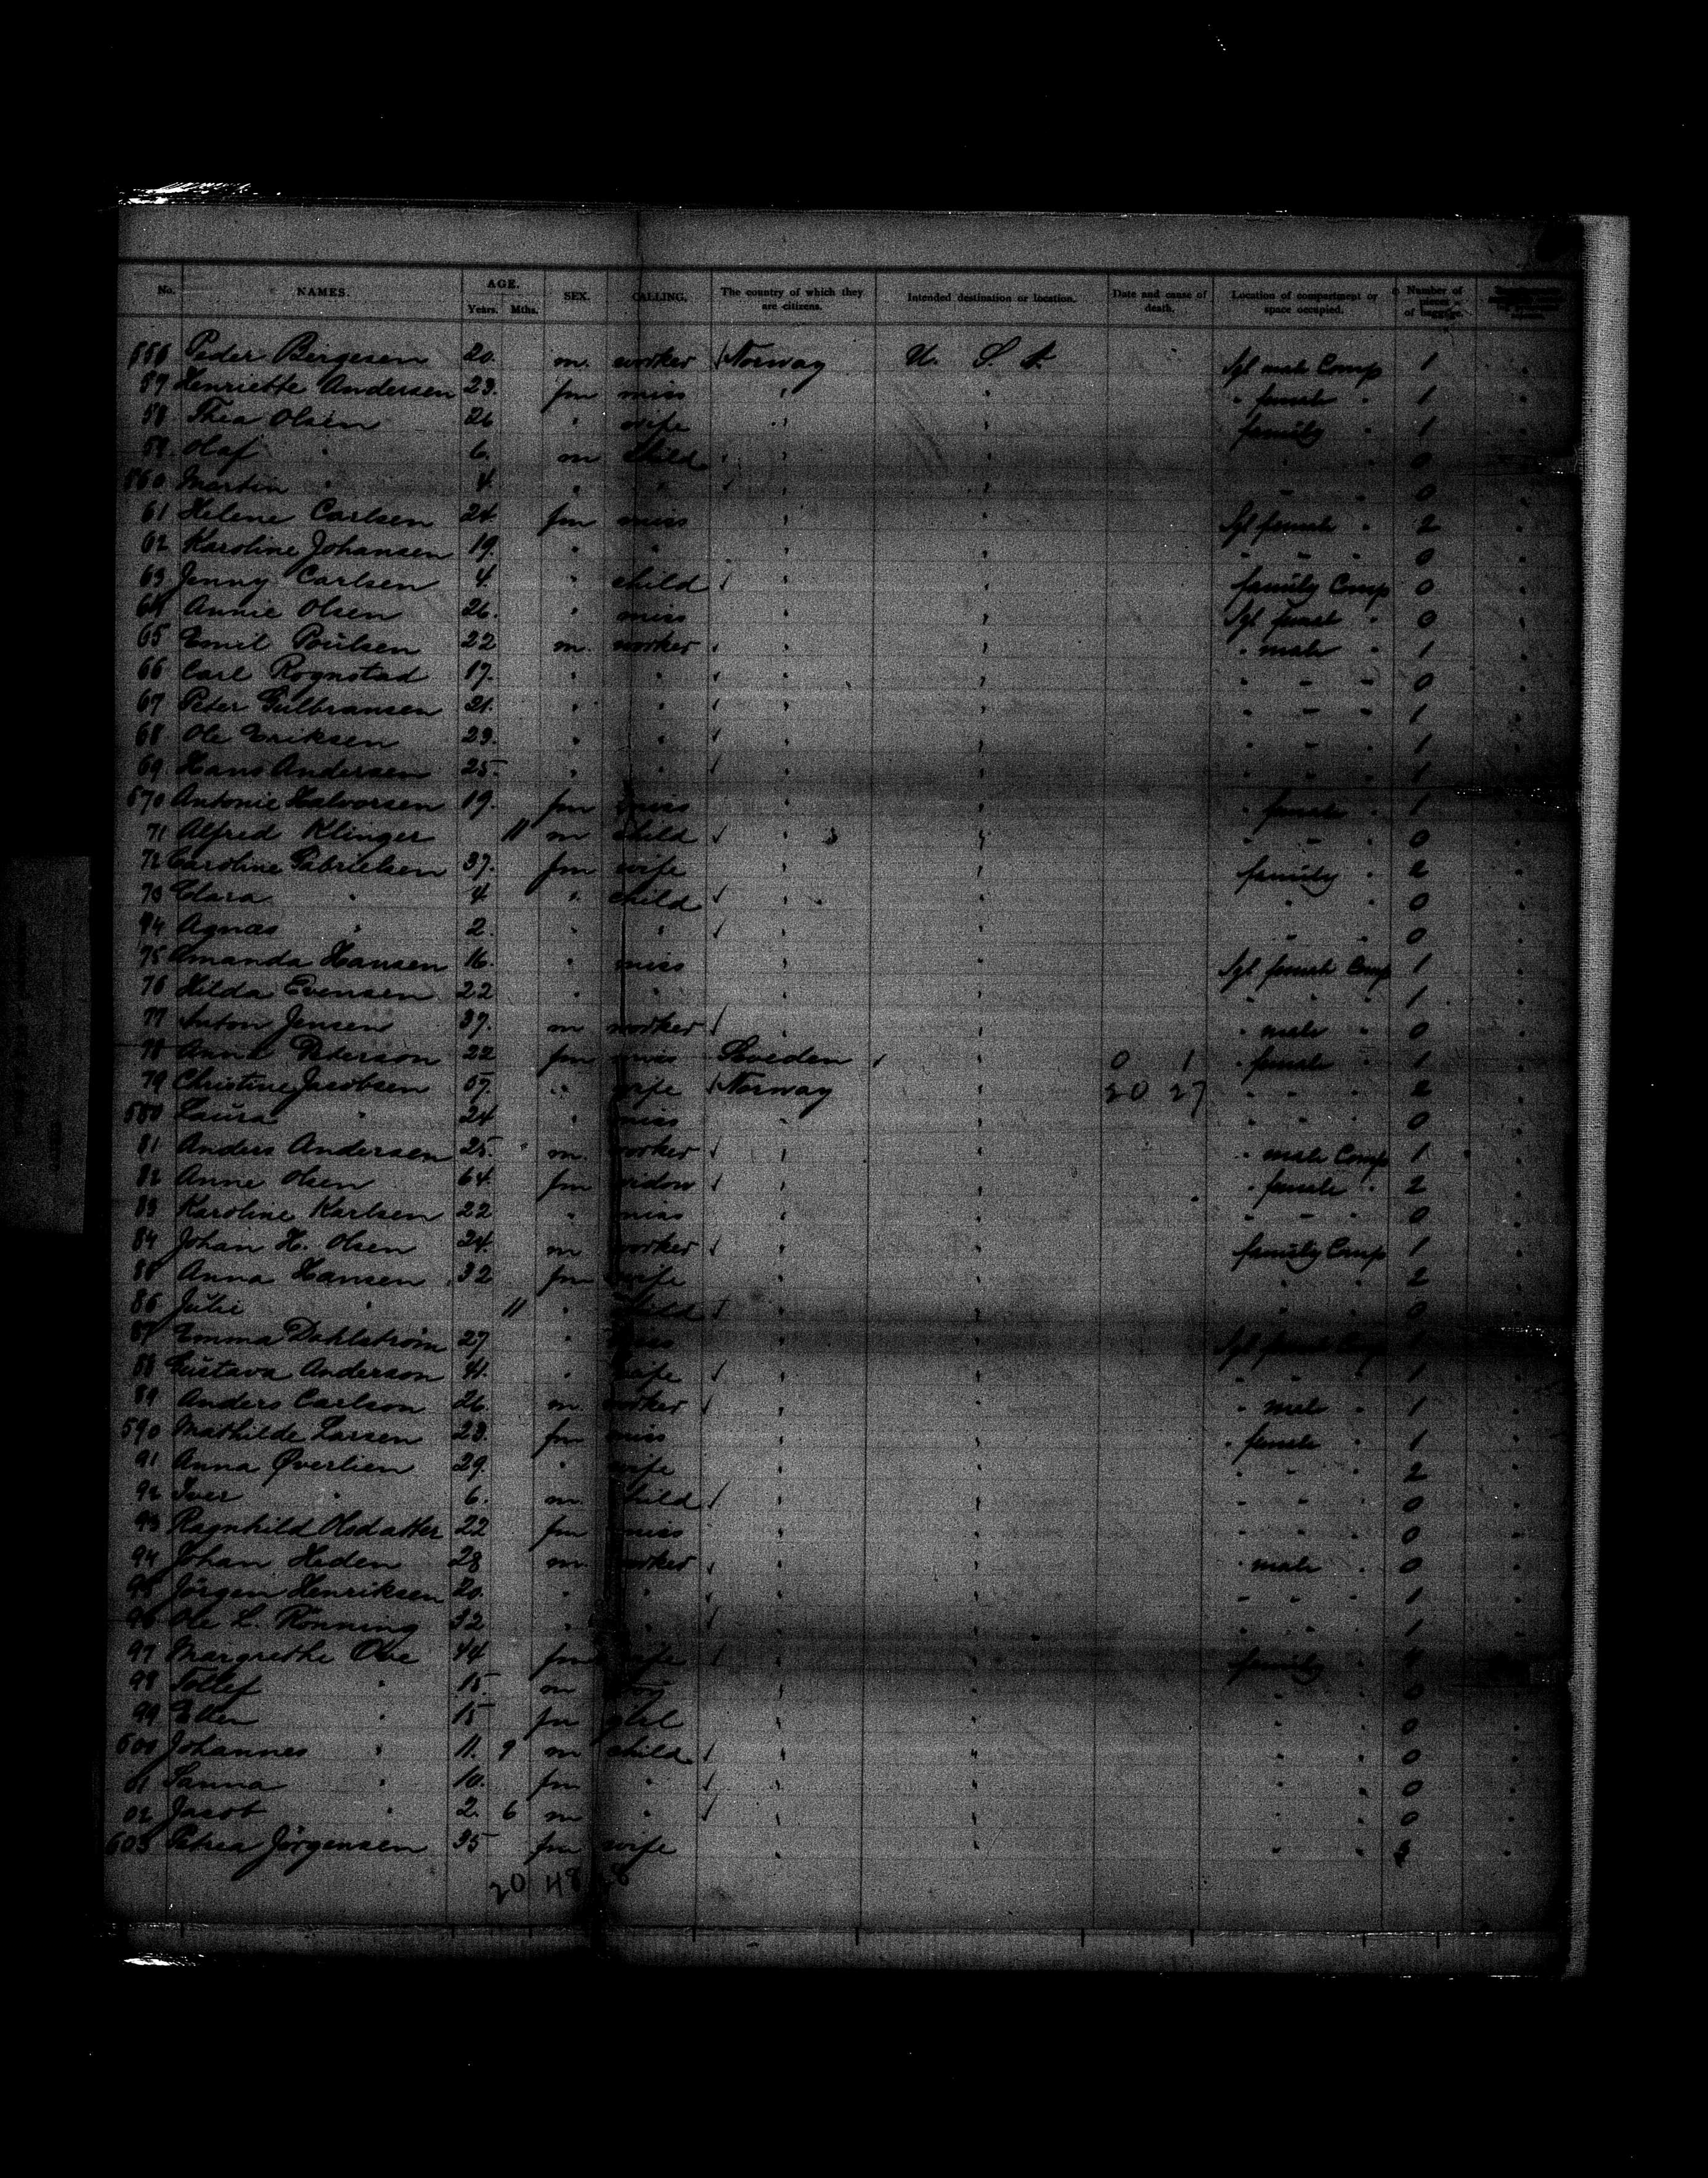 No. NAMES. AGE. Years. Mths. SEX. CALLING. The country of which they are citizens. Intended destination or location. Date and cause of death. Location of compartment or space occupied. Number of pieces of baggage.
556 Peder Bergesen 20. m. worker Norway U. S. A. Sgl male Comp 1
57 Henriette Andersen 23. fm miss " " " female " 1
58 Thea Olsen 26 " wife " " family " 1
59. Olaf " 6. m child " " " " 0
560 Martin " 4 " " " " " " 0
61 Helene Carlsen 24 fm miss " " Sgl female " 2
62 Karoline Johansen 19. " " " " " " " 0
63 Jenny Carlsen 4. " child " " family Comp 0
64 Annie Olsen 26. " miss " " Sgl femal " 0
65 Emil Poulsen 22 m. worker " " " male " 1
66 Carl Rognstad 17. " " " " " " " 0
67 Peter Gulbransen 21. " " " " " " " 1
68 Ole Eriksen 23. " " " " " " " 1
69. Hans Andersen 25. " " " " " " " 1
570 Antonie Halvorsen 19. fm miss " " " female " 1
71 Alfred Klinger 11 m child " " " " " 0
72 Caroline Gabrielsen 37. fm wife " " family " 2
73 Clara " 4 " child " " " " 0
74 Agnas " 2. " " " " " " 0
75 Amanda Hansen 16. " miss " " Sgl female Comp 1
76 Hilda Evensen 22 " " " " " " " 1
77 Anton Jensen 37. m worker " " " male " 0
78 Anna Peterson 22 fm miss Sweden " 0 1 " female " 1
79 Christine Jacobsen 57. " wife Norway " 20 27 " " " 2
580 Laura " 24 " miss " " " " " 0
81 Anders Andersen 25. m. worker " " " male Comp 1
82 Anne Olsen 64. fm widow " " " female " 2
83 Karoline Karlsen 22 " miss " " " " " 0
84 Johan H. Olsen 24. m worker " " family Comp 1
85 Anna Hansen 32 fm wife " " " " 2
86 Julie " 11 " child " " " " 0
87 Emma Dahlstrøm 27 " miss " " Sgl female Comp 1
88 Gustava Anderson 41. " wife " " " " " 1
89 Anders Carlson 26. m. worker " " " male " 1
590 Mathilde Larsen 23. fm miss " " " female " 1
91 Anna Øverlien 29. " wife " " " " " 2
92 Iver " 6. m. child " " " " " 0
93 Ragnhild Olsdatter 22 fm miss " " " " " 0
94 Johan Heden 28 m. worker " " " male " 0
95 Jörgen Henriksen 20. " " " " " " " 1
96 Ole L. Rönning 32 " " " " " " " 1
97 Margrethe 44 fm wife " " family "
98 Tollef " 15. m " " " " 0
99 Ellen " 15 fm girl " " " " 0
600 Johannes " 11. 9 m child " " " " 0
01 Sanna " 10. fm " " " " " 0
02 Jacob " 2. 6 m " " " " " 0
603 Petrea Jörgensen 35 fm wife " " " " 3
20 48 28